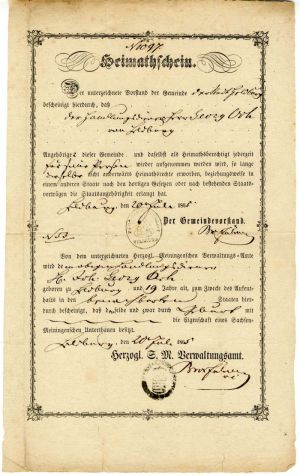 No 1097
Heimathschein.
Der unterzeichnete Vorstand der Gemeinde
bescheinigt hierdurch, daß
der Handlungsdiener Georg Ort
von Hildburg
Angehörige dieser Gemeinde und daselbst als Heimathberechtigt jederzeit
für seine Person wieder aufgenommen werden wird, so lange
derselbe nicht anderwärts Heimathsrechte erworben, beziehungsweise in
einem anderen Staate nach den dortigen Gesetzen oder nach bestehenden Staats-
verträgen die Staatsangehörigkeit erlangt hat.
den 20 Juli
Der Gemeindevorstand.
No 53.
Von dem unterzeichneten Herzogl. Meiningenschen Verwaltungs-Amte
wird dem obigen Handlungsdiener
Joh. Georg Ort
zu 19 Jahre alt, zum Zweck des Aufent-
halts in den benachbarten Staaten hier-
durch bescheinigt, daß derselbe und zwar durch Geburt
die Eigenschaft eines Sachsen-
Meiningenschen Unterthanen besitzt.
den 20 Juli
Herzogl. S. M. Verwaltungsamt.